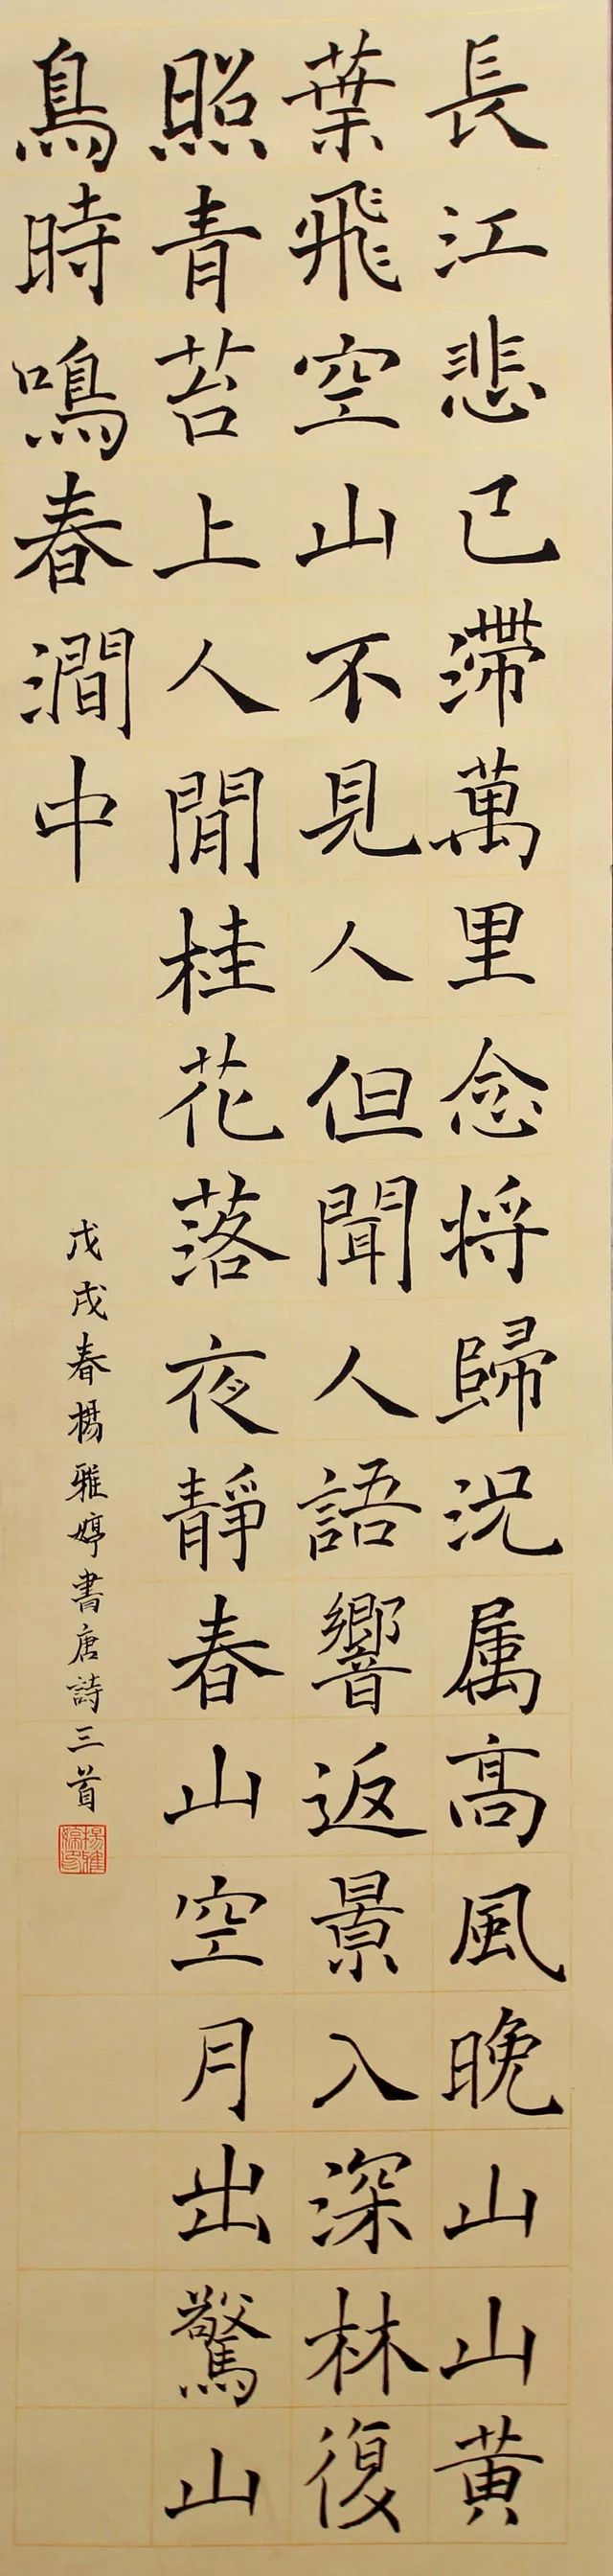 長江悲已滯萬里念將歸況属高風晚山山黄
葉飛空山不見人但聞人語響返景入深林復
照青苔上人閒桂花落夜靜春山空月出驚山
鳥時鳴春澗中
戊戌春楊雅婷書唐詩三首
楊雅婷印